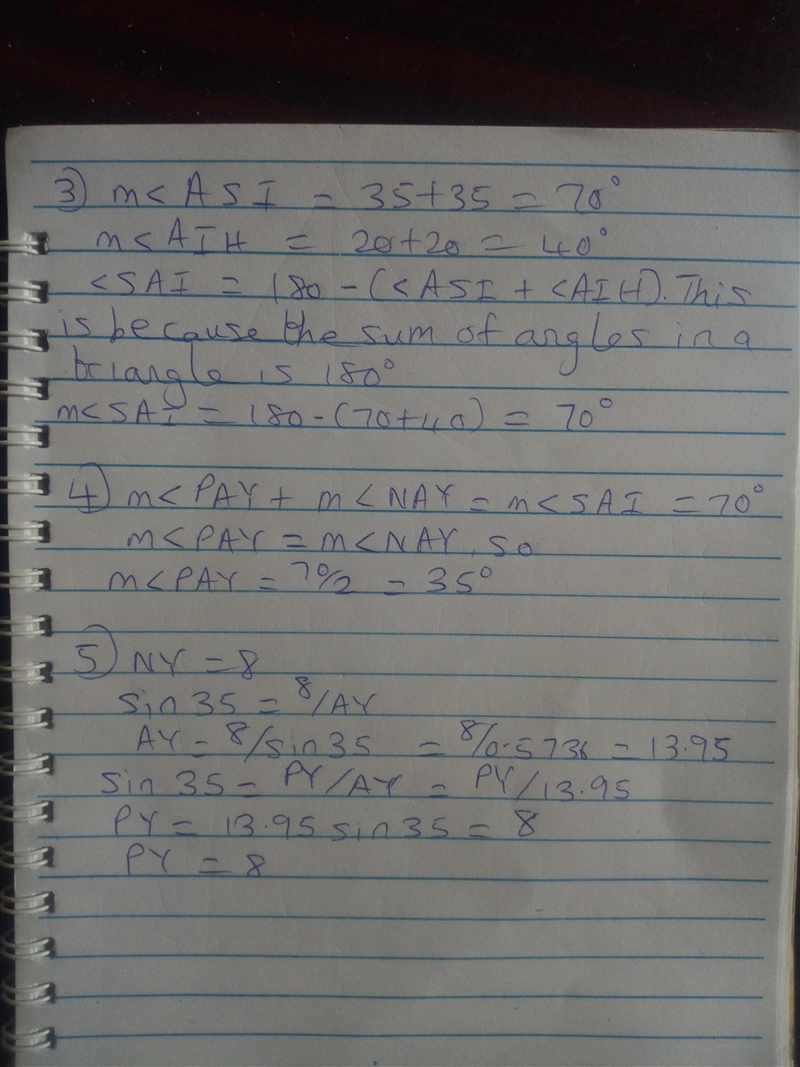 3) m<ASI = 35+35 = 70°
m<AIH = 20+20 = 40°
<SAI = 180 - (<ASI + <AIH). This
is because the sum of angles in a
triangle is 180°
m<SAI = 180-(70+40) = 70°
4) m<PAY + m<NAY = m<SAI = 70°
m<PAY = m<NAY, so
m<PAY = 70/2 = 35°
5) NY = 8
sin35 = 8/AY
AY = 8/sin35 = 8/0.5736 = 13.95
sin 35 = PY/AY = PY/13.95
PY = 13.95 sin35 = 8
PY = 8